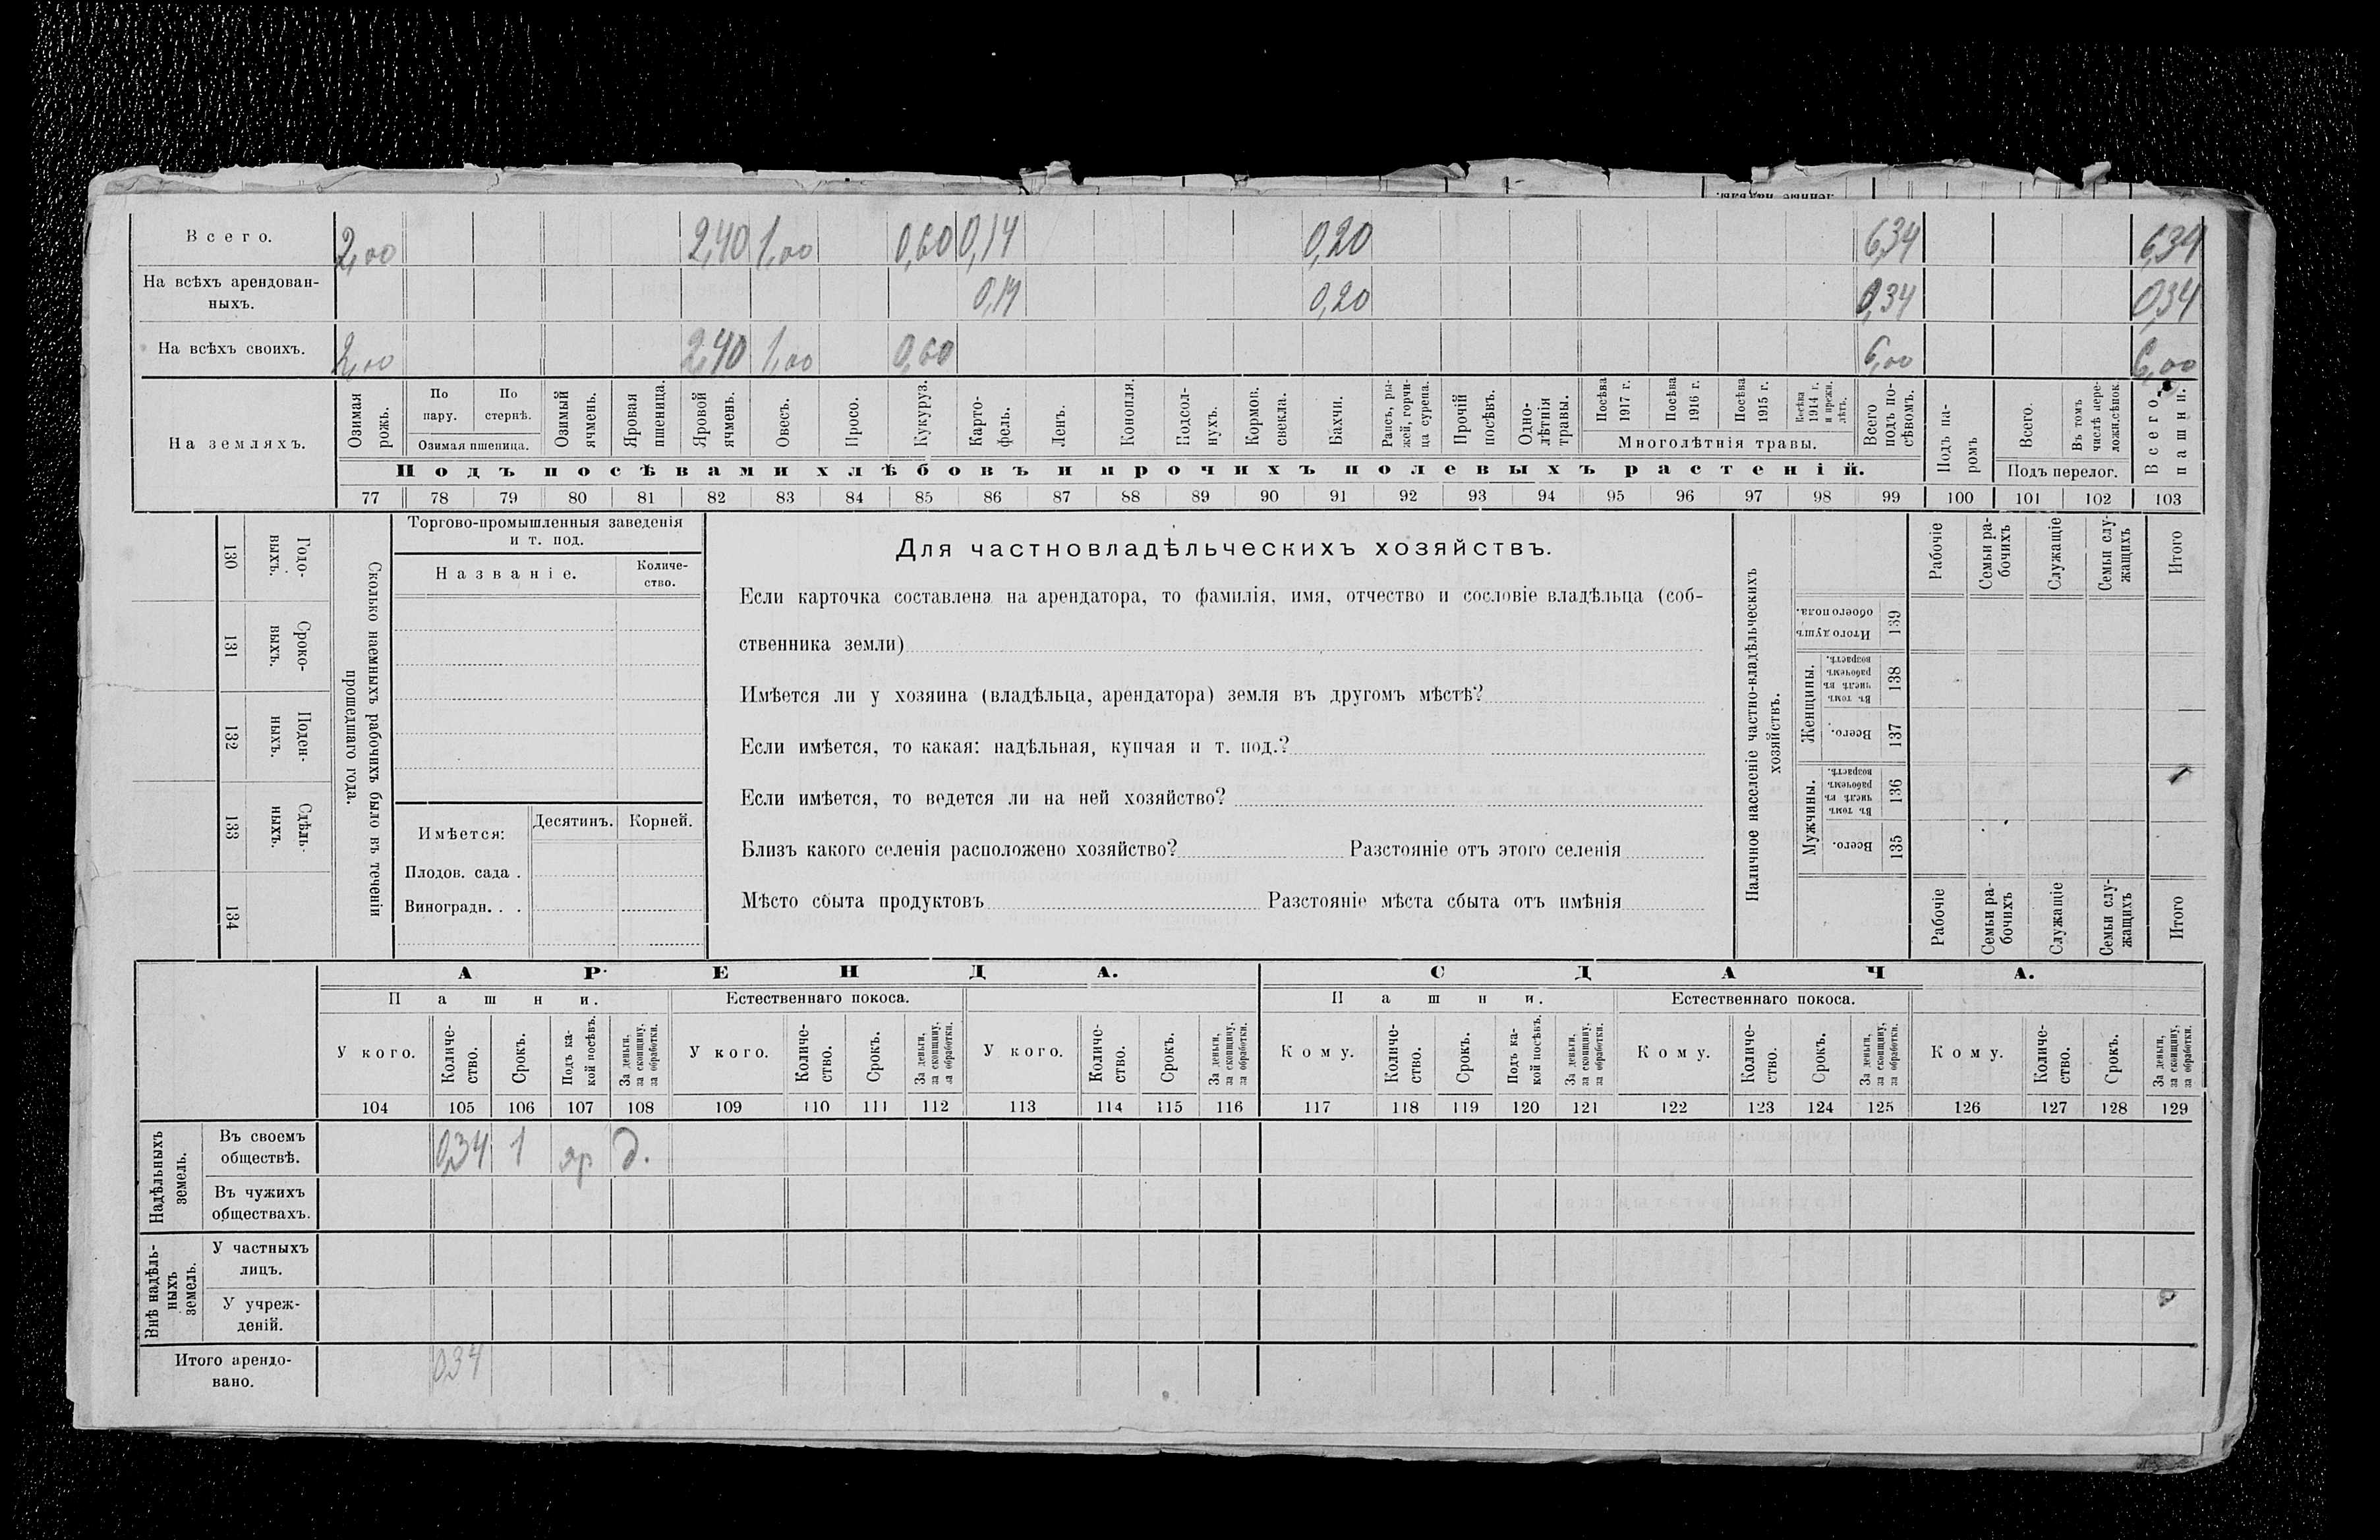 В с е г о. 2,00 2,40 1,00 0,60 0,14 0,20 6,34 6,34
На всѣхъ арендован-
ныхъ. 0,14 0,20 0,34 0,34
На всѣхъ своихъ. 2,00 2,40 1,00 0,60 6,00 6,00
На земляхъ.
Озимая рожь.
По пару.
По стернѣ.
Озимая пшеница.
Озимый ячмень.
Яровая пшеница.
Яровой ячмень.
Овесъ.
Просо.
Кукуруз.
Карто-
фель.
Ленъ.
Конопля.
Подсол-
нухъ.
Кормов. свекла.
Бахчи.
Рапсъ, ры-
жей, горчи-
ца сурепа.
Прочій посѣвъ.
Одно-
лѣтнія травы.
Посѣва 1917 г.
Посѣва 1916 г.
Посѣва 1915 г.
1914 г. и прежн. лѣтъ.
Многолѣтнія травы.
Всего подъ по-
сѣвомъ.
Подъ па-
ромъ
Всего.
Въ томъ числѣ пере-
Подъ перелог.
Всего пашни.
Подъ посѣвами хлѣбовъ и прочихъ полевыхъ растеній.
77 78 79 80 81 82 83 84 85 86 87 88 89 90 91 92 93 94 95 96 97 98 99 100 101 102 103
Сколько наемныхъ рабочихъ было въ теченіи
прошедшаго года.
Годо-
выхъ.
130
Сроко-
выхъ.
131
Поден-
ныхъ.
132
Сдѣль-
ныхъ.
133
134
Торгово-промышленныя заведенія
и т. под.
Названіе.
Количе-
ство.
Имѣется: Десятинъ. Корней.
Плодов. сада .
Виноградн. . .
Для частновладѣльческихъ хозяйствъ.
Если карточка составлена на арендатора, то фамилія, имя, отчество и сословіе владѣльца (соб-
ственника земли)
Имѣется ли у хозяина (владѣльца, арендатора) земля въ другомъ мѣстѣ?
Если имѣется, то какая: надѣльная, купчая и т. под.?
Если имѣется, то ведется ли на ней хозяйство?
Близъ какого селенія расположено хозяйство? Разстояніе отъ этого селенія
Мѣсто сбыта продуктовъ Разстояніе мѣста сбыта отъ имѣнія
Наличное населеніе частно-владѣльческихъ
хозяйствъ.
Рабочіе
Семьи ра-
бочихъ
Служащіе
Семьи слу-
жащихъ
Итого
Итого душъ
обоего пола.
139
Женщины.
Въ томъ числѣ въ рабочемъ возрастѣ.
138
Всего.
137
Мужчины.
Въ томъ числѣ въ рабочемъ возрастѣ.
136
Всего.
135
Рабочіе
Семьи ра-
бочихъ
Служащіе
Семьи слу-
жащихъ
Итого
АРЕНДА. СДАЧА.
Пашни. Естественнаго покоса. Пашни. Естественнаго покоса.
У кого.
Количе-
ство.
Срокъ.
Подъ ка-
кой посѣвъ.
За деньги, за скопщину, за обработки.
У кого.
Количе-
ство.
Срокъ.
За деньги, за скопщину, за обработки.
У кого.
Количе-
ство.
Срокъ.
За деньги, за скопщину, за обработки.
Кому.
Количе-
ство.
Срокъ.
Подъ ка-
кой посѣвъ.
За деньги, за скопщину, за обработки.
Кому.
Количе-
ство.
Срокъ.
За деньги, за скопщину, за обработки.
Кому.
Количе-
ство.
Срокъ.
За деньги, за скопщину, за обработки.
104 105 106 107 108 109 110 111 112 113 114 115 116 117 118 119 120 121 122 123 124 125 126 127 128 129
Надѣльныхъ
земель.
Въ своемъ
обществѣ. 0,34 1 яр д.
Въ чужихъ
обществахъ.
Внѣ надѣль-
ныхъ
земель.
У частныхъ
лицъ.
У учреж-
деній.
Итого арендо-
вано. 034